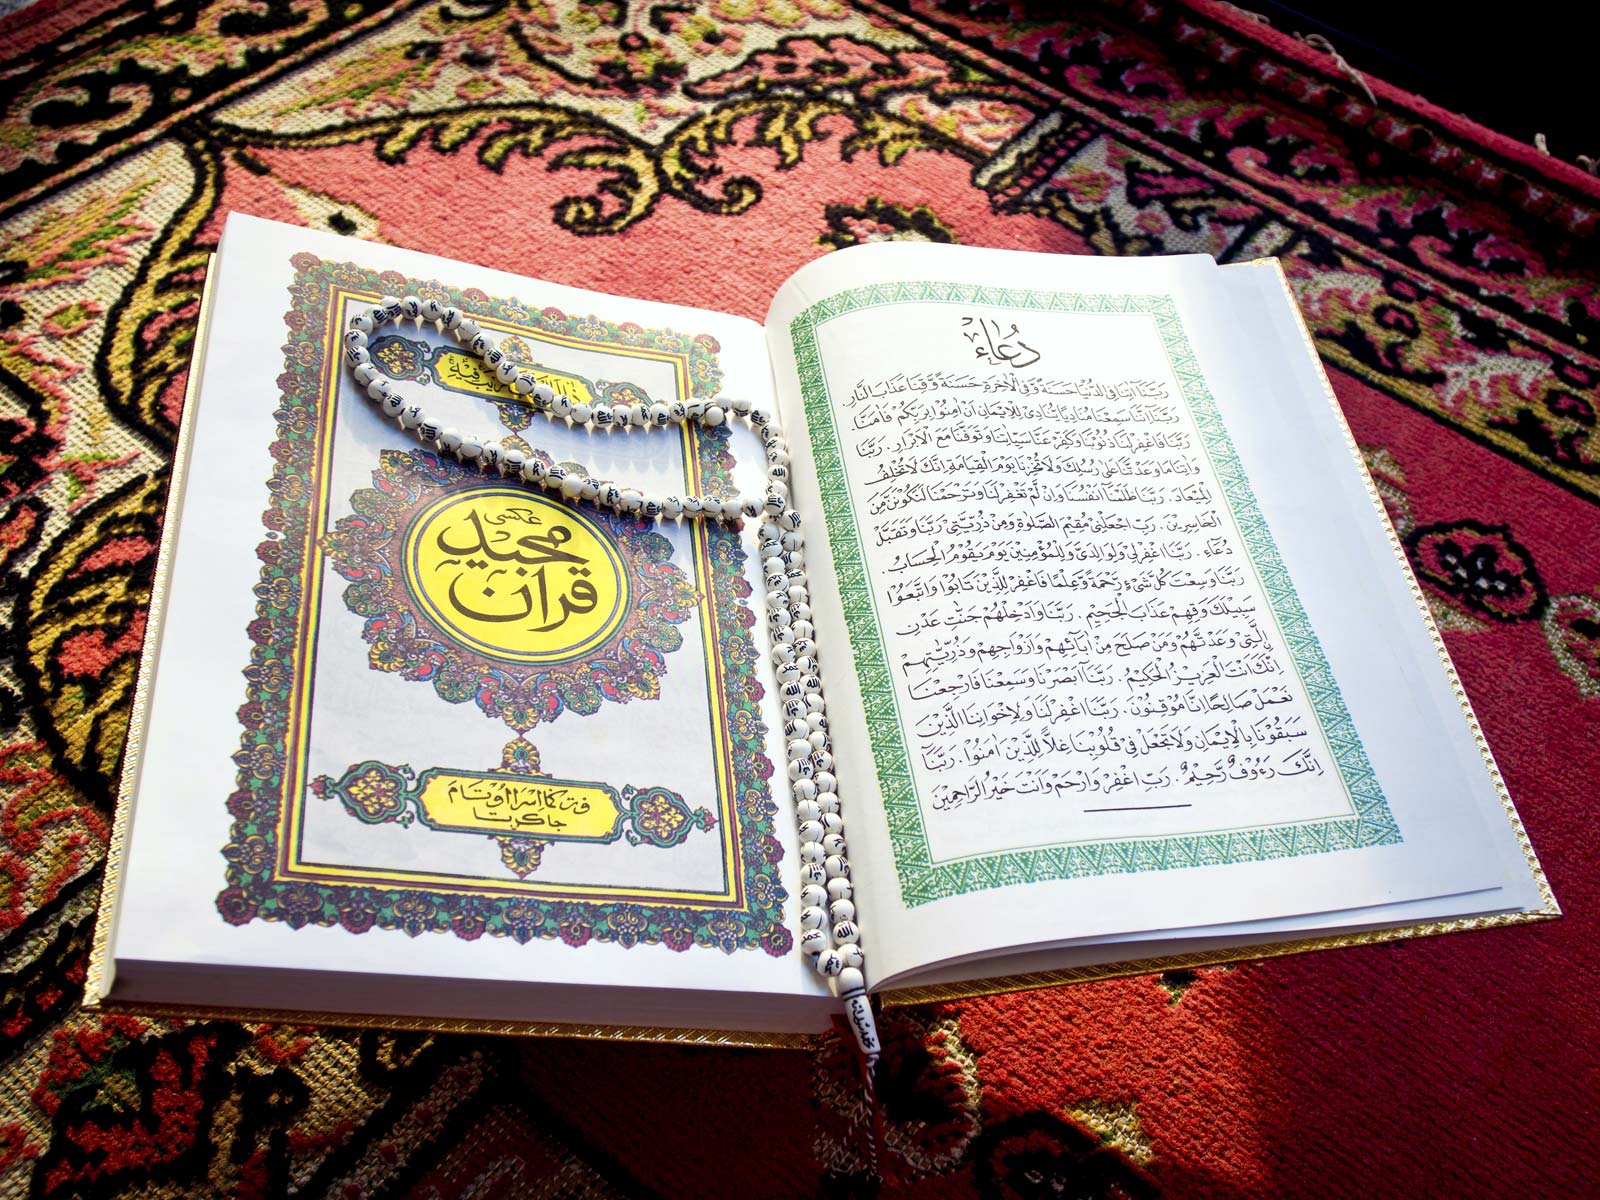 دُعَاءْ
رَبَّنَا آتِنَا فِي الدُّنْيَا حَسَنَةً وَّفِي الْاٰخِرَةِ حَسَنَةً وَّقِنَا عَذَابَ النَّارِ.
رَبَّنَا اِنَّنَا سَمِعْنَا مُنَادِيًا يُّنَادِيْ لِلْاِيْمَانِ اَنْ اٰمِنُوْا بِرَبِّكُمْ فَاٰمَنَّا
رَبَّنَا فَاغْفِرْ لَنَا ذُنُوْبَنَا وَكَفِّرْ عَنَّا سَيِّاٰتِنَا وَتَوَفَّنَا مَعَ الْاَبْرَارِ. رَبَّنَا
وَاٰتِنَا مَا وَعَدْتَّنَا عَلٰى رُسُلِكَ وَلَا تُخْزِنَا يَوْمَ الْقِيَامَةِ اِنَّكَ لَا تُخْلِفُ
الْمِيْعَادَ. رَبَّنَا ظَلَمْنَا اَنْفُسَنَا وَاِنْ لَّمْ تَغْفِرْ لَنَا وَتَرْحَمْنَا لَنَكُوْنَنَّ مِنَ
الْخَاسِرِيْنَ. رَبِّ اجْعَلْنِيْ مُقِيْمَ الصَّلٰوةِ وَمِنْ ذُرِّيَّتِيْ رَبَّنَا وَتَقَبَّلْ
دُعَآءِ. رَبَّنَا اغْفِرْ لِيْ وَلِوَالِدَيَّ وَلِلْمُؤْمِنِيْنَ يَوْمَ يَقُوْمُ الْحِسَابُ.
رَبَّنَا وَسِعْتَ كُلَّ شَيْءٍ رَّحْمَةً وَّعِلْمًا فَاغْفِرْ لِلَّذِيْنَ تَابُوْا وَاتَّبَعُوْا
سَبِيْلَكَ وَقِهِمْ عَذَابَ الْجَحِيْمِ. رَبَّنَا وَاَدْخِلْهُمْ جَنّٰتِ عَدْنٍ
الَّتِيْ وَعَدْتَّهُمْ وَمَنْ صَلَحَ مِنْ اٰبَآئِهِمْ وَاَزْوَاجِهِمْ وَذُرِّيّٰتِهِمْ
اِنَّكَ اَنْتَ الْعَزِيْزُ الْحَكِيْمُ. رَبَّنَا اَبْصَرْنَا وَسَمِعْنَا فَارْجِعْنَا
نَعْمَلْ صَالِحًا اِنَّا مُوْقِنُوْنَ. رَبَّنَا اغْفِرْ لَنَا وَلِاِخْوَانِنَا الَّذِيْنَ
سَبَقُوْنَا بِالْاِيْمَانِ وَلَا تَجْعَلْ فِيْ قُلُوْبِنَا غِلًّا لِّلَّذِيْنَ اٰمَنُوْا. رَبَّنَآ
اِنَّكَ رَءُوْفٌ رَّحِيْمٌ. رَبِّ اغْفِرْ وَارْحَمْ وَاَنْتَ خَيْرُ الرَّاحِمِيْنَ
عكسى
مجيد
قرآن
جاكرتا